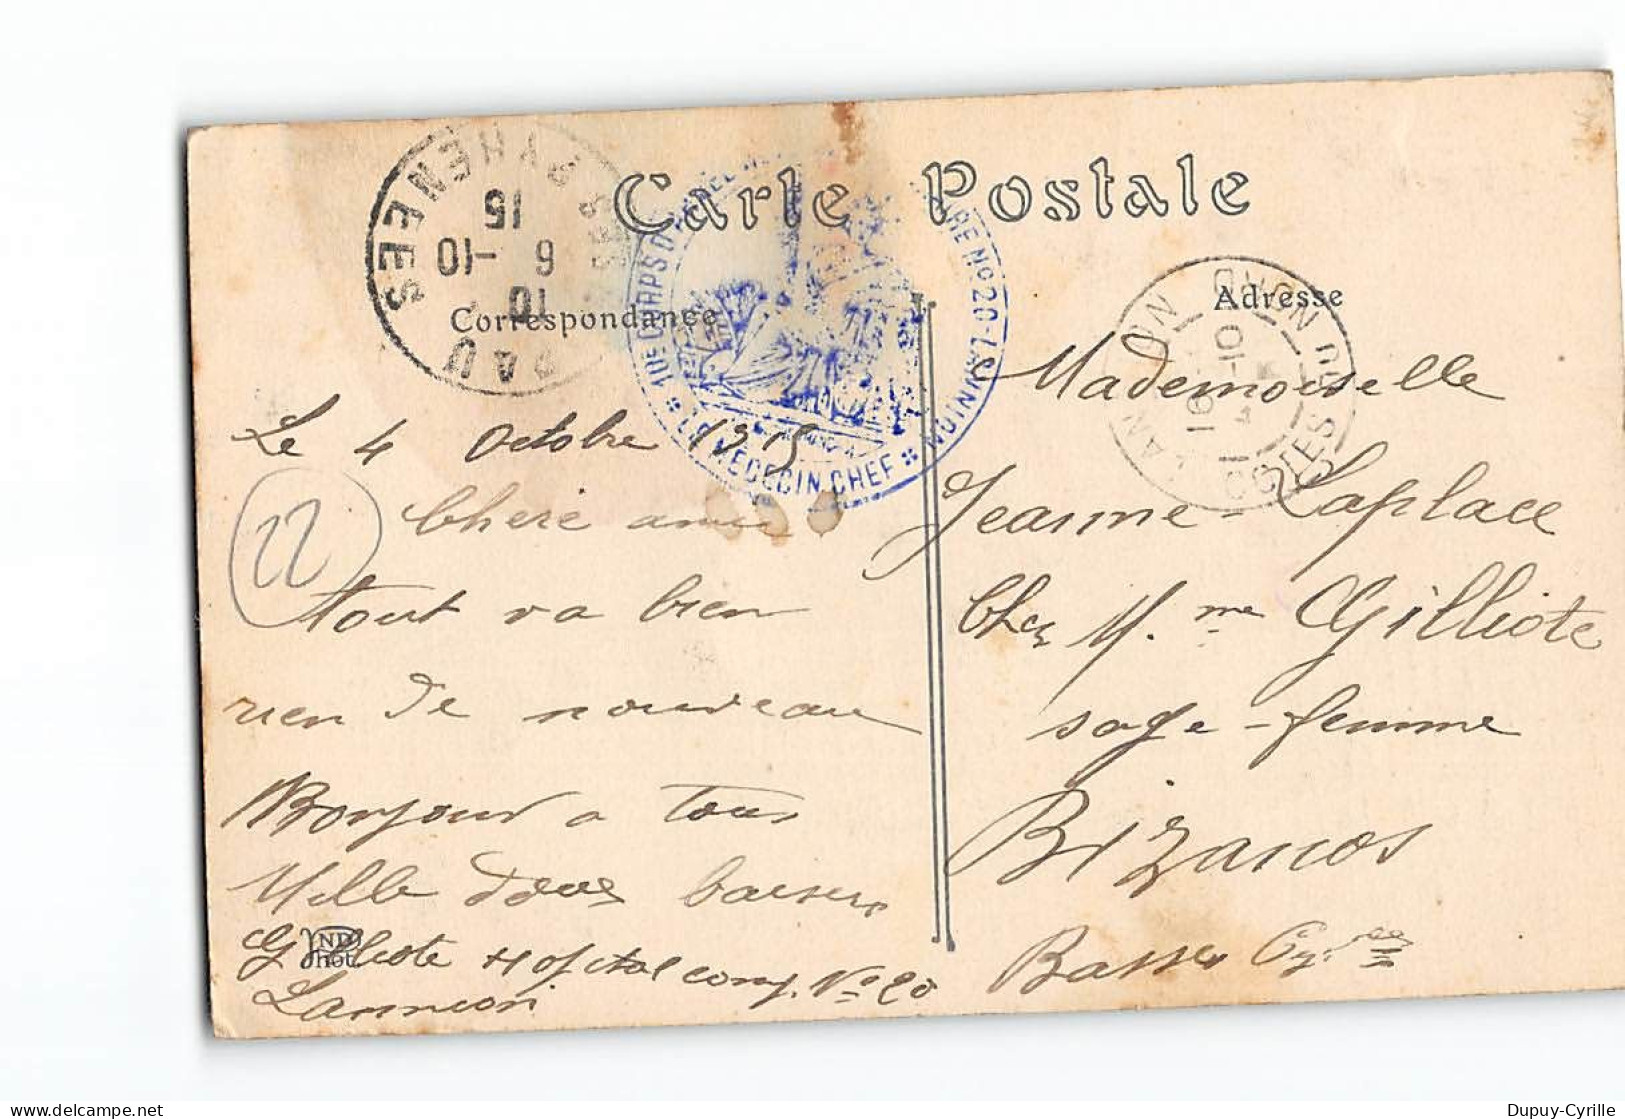 Carte Postale
Correspondance
Adresse
PAU
PYRENEES
15
6 -10
10
10E CORPS D'
RE No 20 - LANNION
* LE MEDECIN CHEF *
LANNION
COTES DU
16
10
Le 4 Octobre 1915
Chere amie
tout va bien
rien de nouveau
Bonjour a tous
Mille doux baisers
Gilliote Hopital comp. No 20
Lannion
ND
Phot.
22
Mademoiselle
Jeanne Laplace
Chez M.me Gilliote
sage-femme
Bizanos
Basses Pyrees
Dupuy-Cyrille